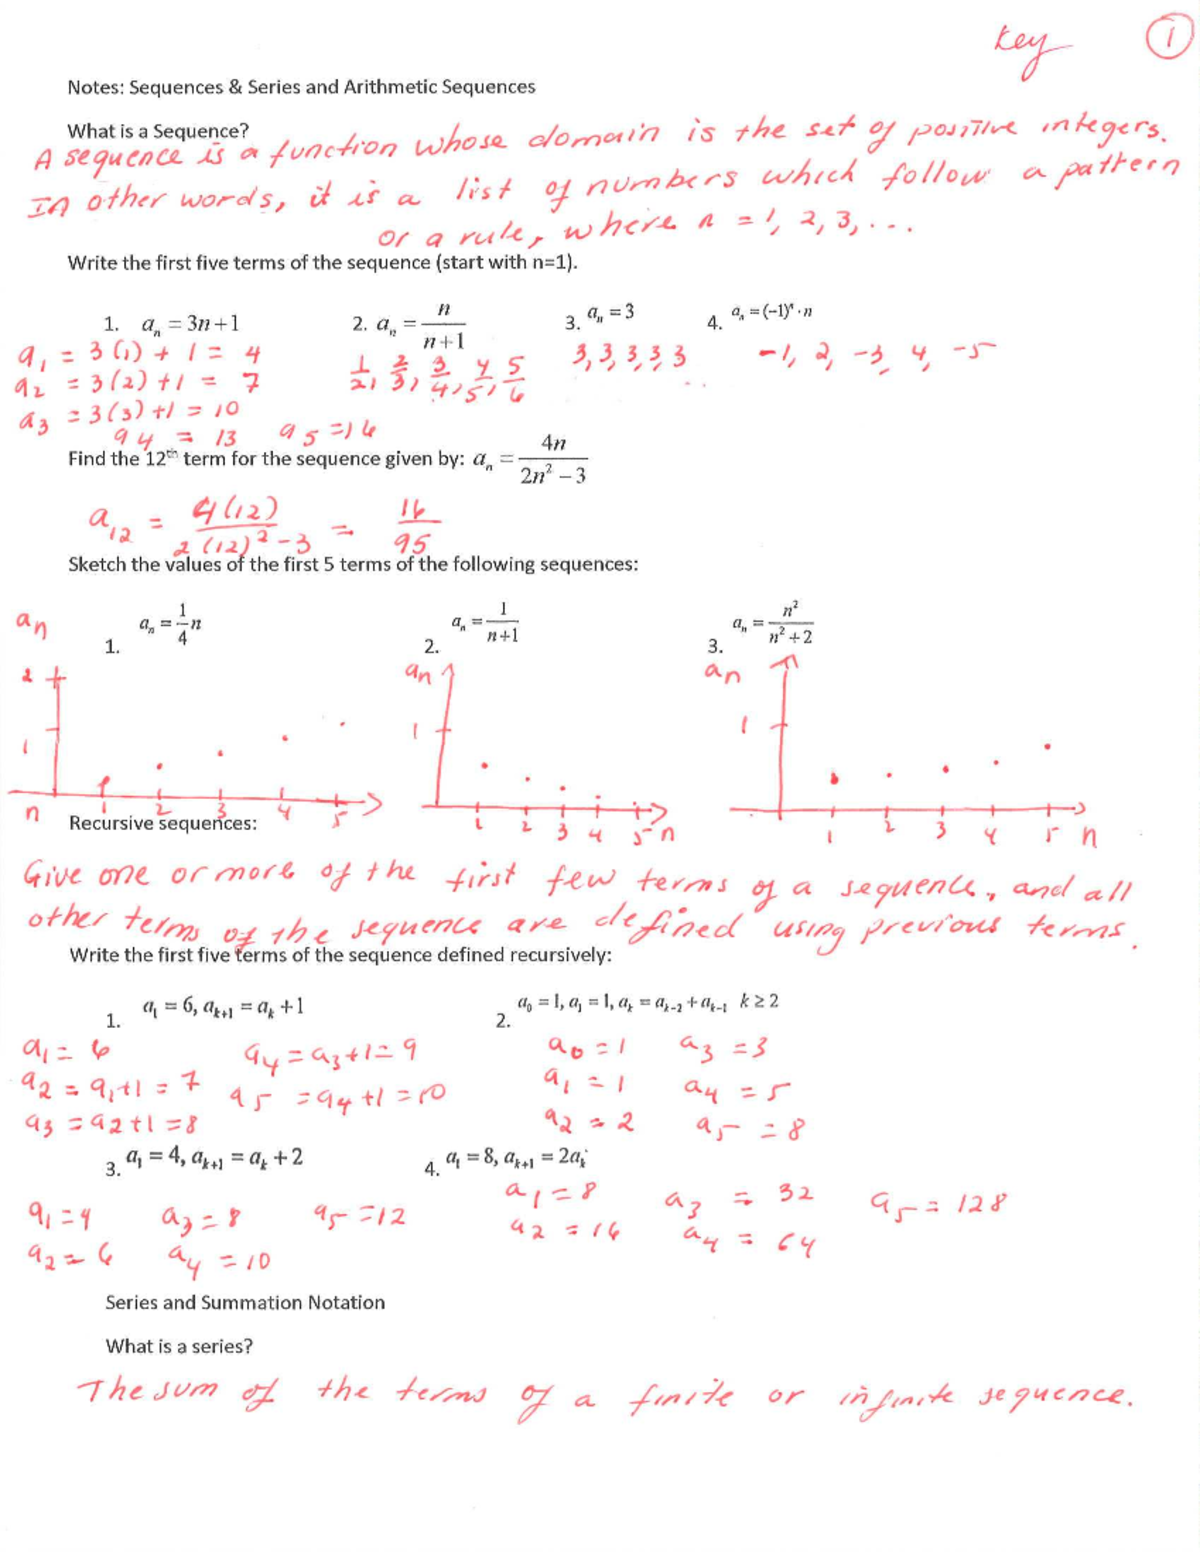 Key ①
Notes: Sequences & Series and Arithmetic Sequences
What is a Sequence?
A sequence is a function whose domain is the set of positive integers.
In other words, it is a list of numbers which follow a pattern
or a rule, where n = 1, 2, 3, ...
Write the first five terms of the sequence (start with n=1).
1. aₙ = 3n+1 2. aₙ = n/(n+1) 3. aₙ = 3 4. aₙ = (-1)ⁿ · n
a₁ = 3(1) + 1 = 4 1/2, 2/3, 3/4, 4/5, 5/6 3, 3, 3, 3, 3 -1, 2, -3, 4, -5
a₂ = 3(2) + 1 = 7
a₃ = 3(3) + 1 = 10
a₄ = 13 a₅ = 16
Find the 12th term for the sequence given by: aₙ = 4n/(2n² – 3)
a₁₂ = 4(12)/(2(12)² - 3) = 16/95
Sketch the values of the first 5 terms of the following sequences:
1. aₙ = 1/4 n 2. aₙ = 1/(n+1) 3. aₙ = n²/(n²+2)
aₙ aₙ aₙ
2
1 1 1
n 1 2 3 4 5 1 2 3 4 5 n 1 2 3 4 5 n
Recursive sequences:
Give one or more of the first few terms of a sequence, and all
other terms of the sequence are defined using previous terms.
Write the first five terms of the sequence defined recursively:
1. a₁ = 6, aₖ₊₁ = aₖ + 1 2. a₀ = 1, a₁ = 1, aₖ = aₖ₋₂ + aₖ₋₁ k ≥ 2
a₁ = 6 a₄ = a₃ + 1 = 9 a₀ = 1 a₃ = 3
a₂ = a₁ + 1 = 7 a₅ = a₄ + 1 = 10 a₁ = 1 a₄ = 5
a₃ = a₂ + 1 = 8 a₂ = 2 a₅ = 8
3. a₁ = 4, aₖ₊₁ = aₖ + 2 4. a₁ = 8, aₖ₊₁ = 2aₖ
a₁ = 4 a₃ = 8 a₅ = 12 a₁ = 8 a₃ = 32 a₅ = 128
a₂ = 6 a₄ = 10 a₂ = 16 a₄ = 64
Series and Summation Notation
What is a series?
The sum of the terms of a finite or infinite sequence.